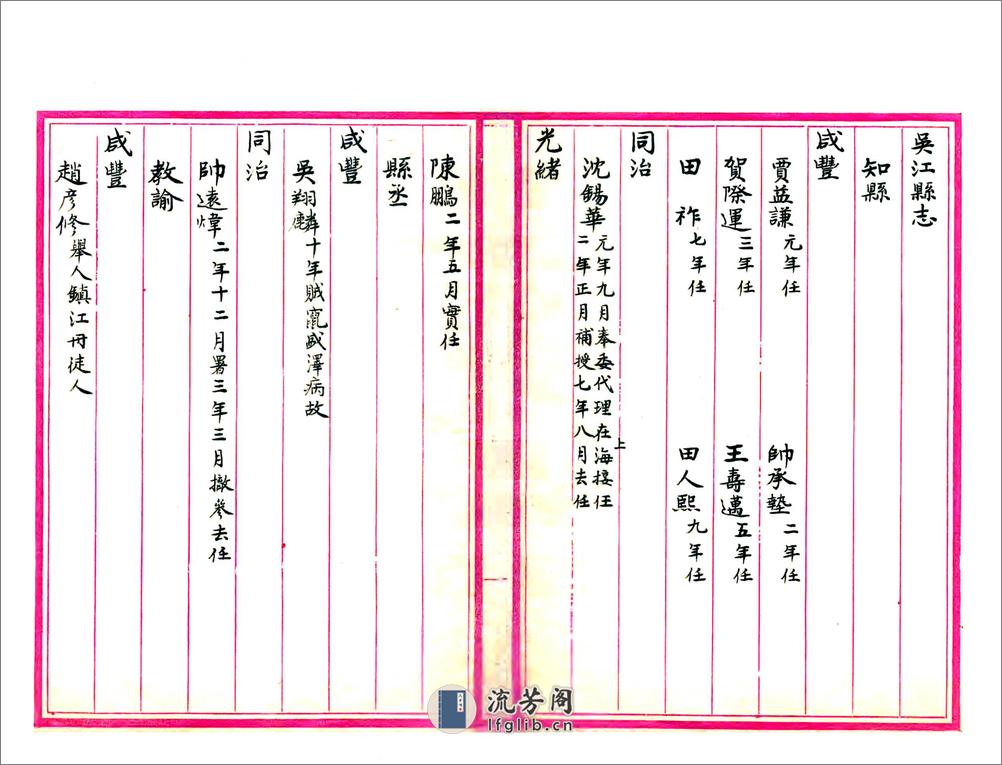 吳江縣志
知縣
咸豐
賈益謙元年任 帥承墊二年任
賀際運三年任 王壽邁五年任
田祚七年任 田人熙九年任
同治
沈錫華元年九月奉委代理在上海接任
二年正月補授七年八月去任
光緒
陳鵬二年五月實任
縣丞
咸豐
吳翔麟十年賊竄盛澤病故
同治
帥遠煒二年十二月署三年三月撤參去任
教諭
咸豐
趙彥修舉人鎮江丹徒人
流芳阁
lfglib.cn